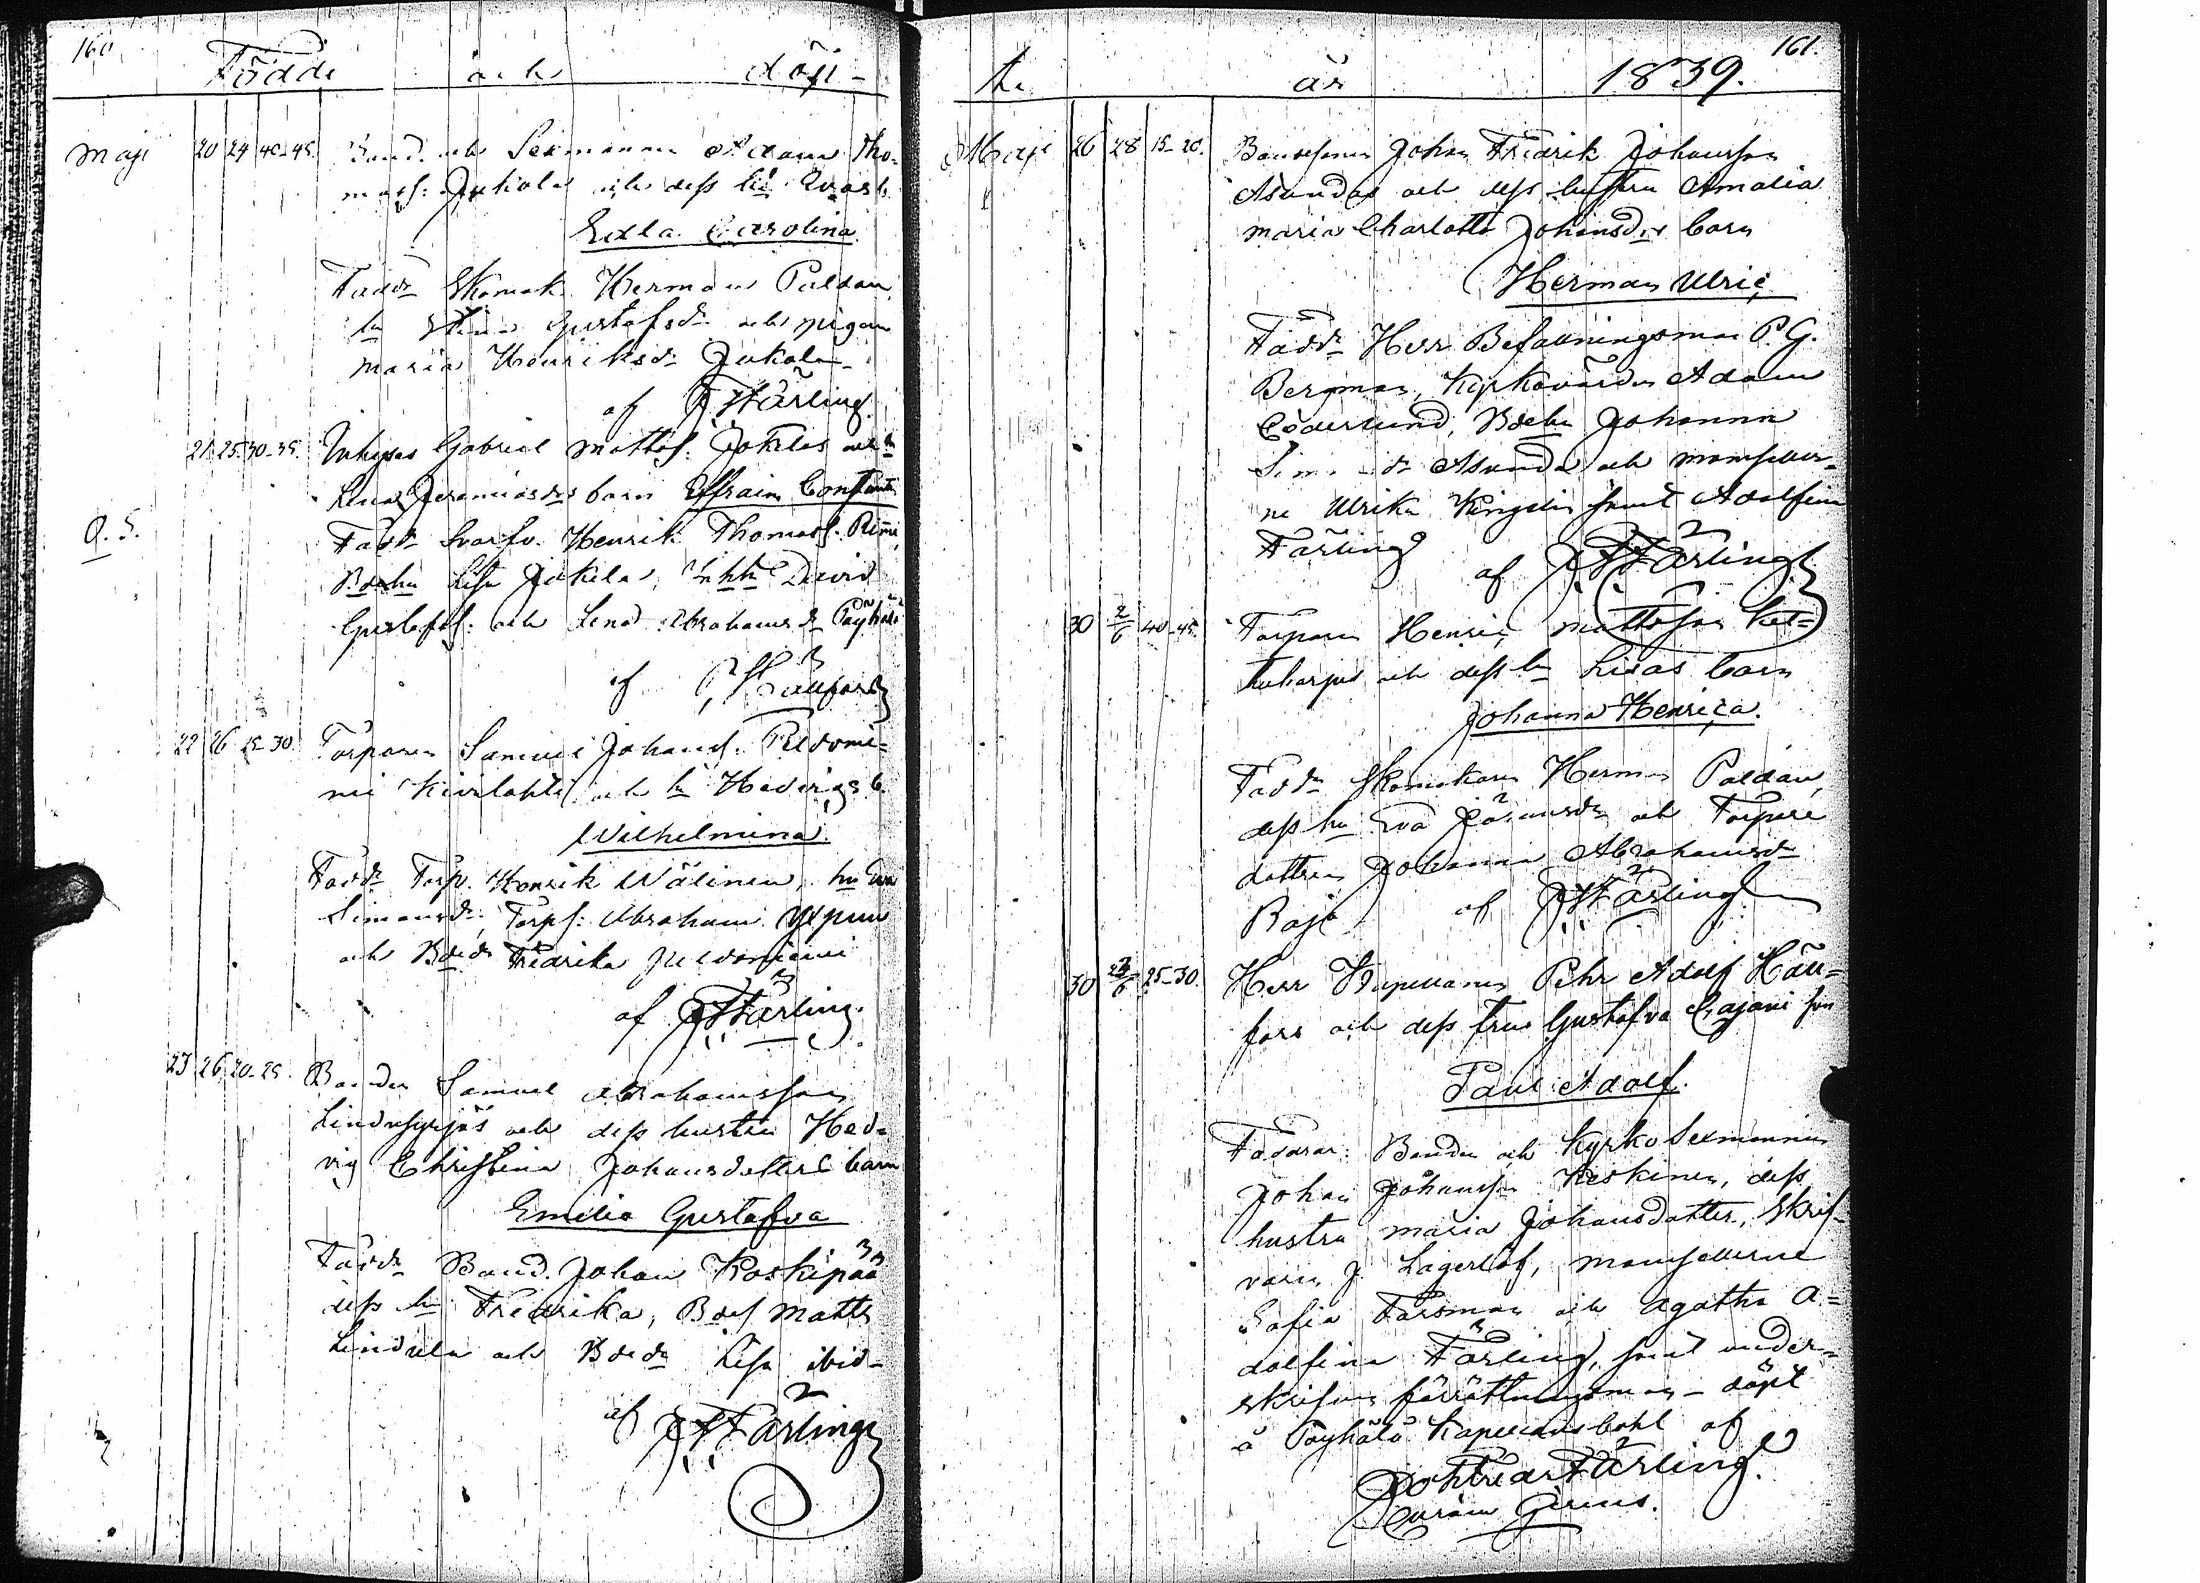 160
Födde och döp-
Maji 20 24 40-45. Bond. och Sexmannen Adam Tho-
matss: Jukola och dess hu Evas b.
Edla Carolina
Faddr Skomak. Herman Paldan,
hu Stina Gustafsdr och pigan
Maria Henriksdr Jukola
af JFFärling.
21. 25. 30-35. Inhyses Gabriel Mattss. Jokelas och hu
Lena Jeremiasdrs barn Effraim Constantin
O. S.
Faddr Svarfv. Henrik Thomass.
Lisa Jokela, Inhh David
Gustafss: och Lena Abrahamsdr Pöyhölä
af P Häufors
22 26 25-30. Torparen Samuel Johanss.
Kivilahti och hu Hedvigs b.
Wilhelmina.
Faddr Torp. Henrik Wälinen, hu Eva
Simonsdr, Torps: Abraham
och Bdedr Fredrika
af JFFärling.
23 26 20-25. Bonden Samuel Abrahamsson
och dess hustru Hed-
vig Christina Johansdotters barn
Emilia Gustafva
Faddr Bond. Johan Koskipää
dess hu Fredrika, Bdes Matts
Lindula och Bdedr Lisa ibid-
af JFFärling
161.
te år 1839.
Maji 26 28 15-20. Bondesonen Johan Fredrik Johansson
Asunda och dess hustru Amalia
Maria Charlotta Johansdrs barn
Herman Ulric
Faddr Herr Befallningsman P. G.
Bergman, Kyrkovärden Adam
Cöderlund, Johanna
dr Asunda och Mamseller-
ne Ulrika Kingelin samt Adolfina
Färling af JFFärling
30 2/6 40-45. Torparen Henric Mattsson Ket-
tuharjus och dess hu Lisas barn
Johanna Henrica.
Faddr Skomakaren Herman Paldan,
dess hu Eva Göransdr och Torpare
dottren Johanna Abrahamsdr
Raja af JFFärling
30 /6 25-30. Herr Kapellanen Pehr Adolf Häu-
fors och dess fru Gustafva Cajani son
Paul Adolf.
Faddrar: Bonden och Kyrko Sexmannen
Johan Johansson Keskinen, dess
hustru Maria Johansdotter, Skrif-
varen J. Lagerlöf, Mamsellerne
Sofia Forsman och Agatha A-
dolfina Färling, samt under-
skrifven förrättningsman - döpt
å Pöyhölä Kapellansbohl af
JohFredrFärling.
Curam Gerens.